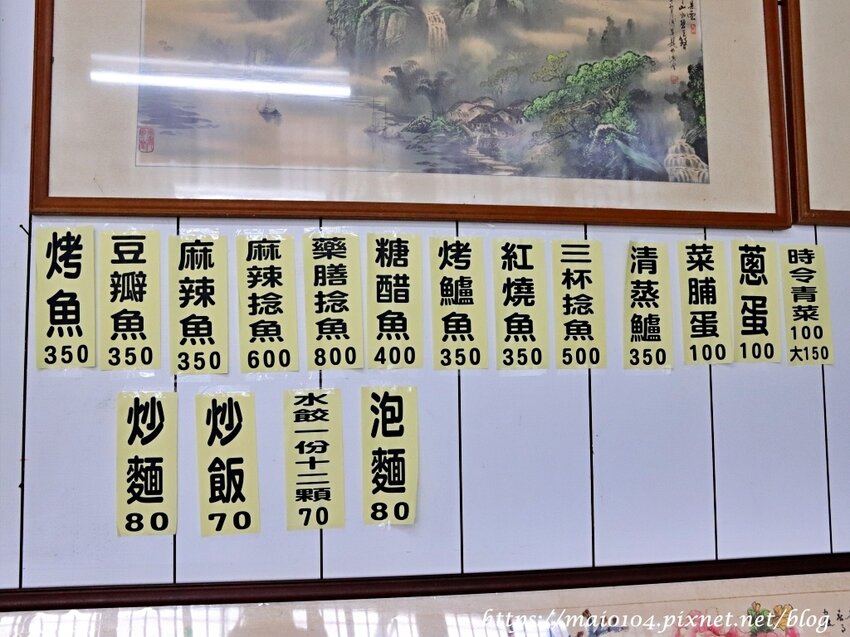 烤魚
350
豆瓣魚
350
麻辣魚
350
麻辣捻魚
600
藥膳捻魚
800
糖醋魚
400
烤鱸魚
350
紅燒魚
350
三杯捻魚
500
清蒸鱸
350
菜脯蛋
100
蔥蛋
100
時令青菜
100
大150
炒麵
80
炒飯
70
水餃一份十二顆
70
泡麵
80
https://maio104.pixnet.net/blog